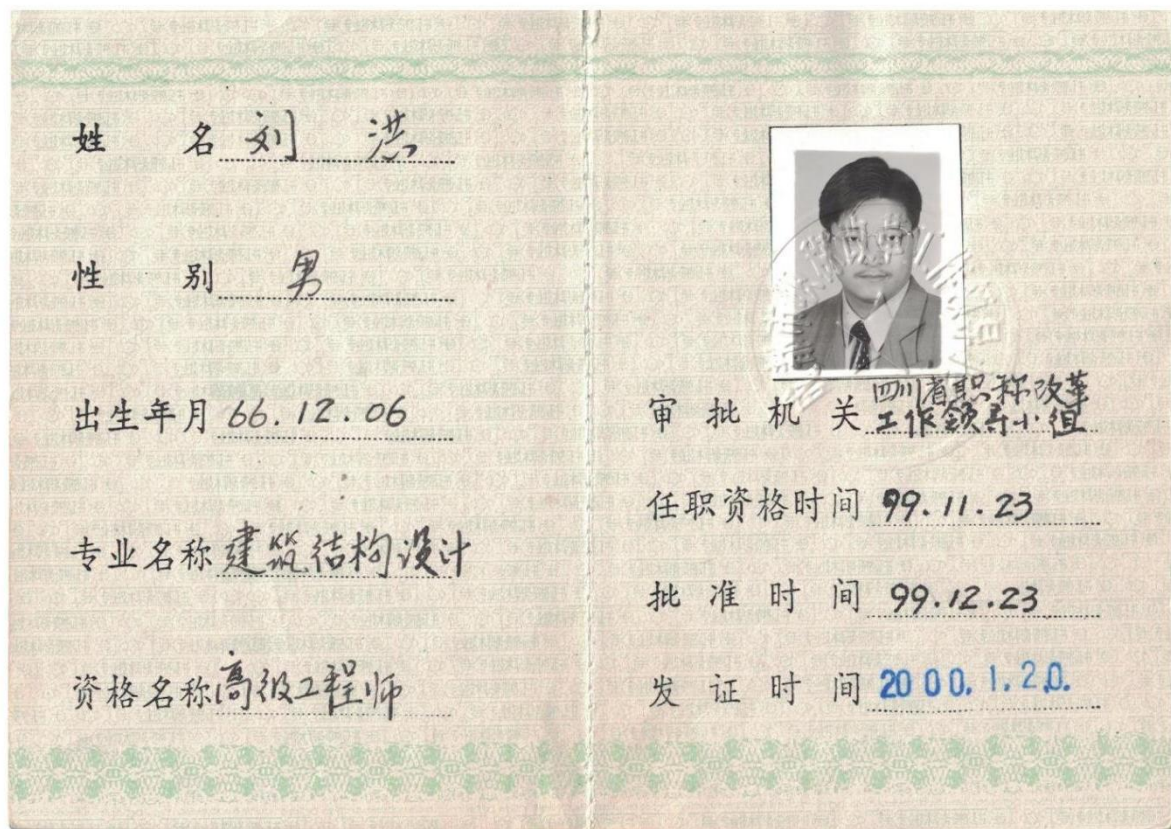 姓名 刘洪
性别 男
出生年月 66.12.06
专业名称 建筑结构设计
资格名称 高级工程师
审批机关 四川省职称改革
工作领导小组
任职资格时间 99.11.23
批准时间 99.12.23
发证时间 2000.1.20.